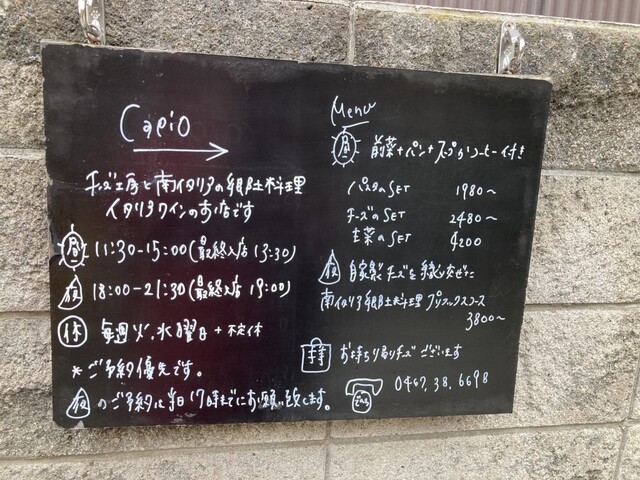 Capio
チーズ工房と南イタリアの郷土料理
イタリアワインのお店です
昼 11:30-15:00(最終入店 13:30)
夜 18:00-21:30(最終入店 19:00)
休 毎週火、水曜日+不定休
*ご予約優先です。
夜のご予約は当日17時までにお願い致します。
Menu
昼 前菜+パン+スープかコーヒー付き
パスタのSET 1980~
チーズのSET 2480~
主菜のSET 4200
夜 自家製チーズを織り交ぜた
南イタリア郷土料理プリフィックスコース
3800~
お持ち帰りチーズございます
でんわ 0467.38.6698